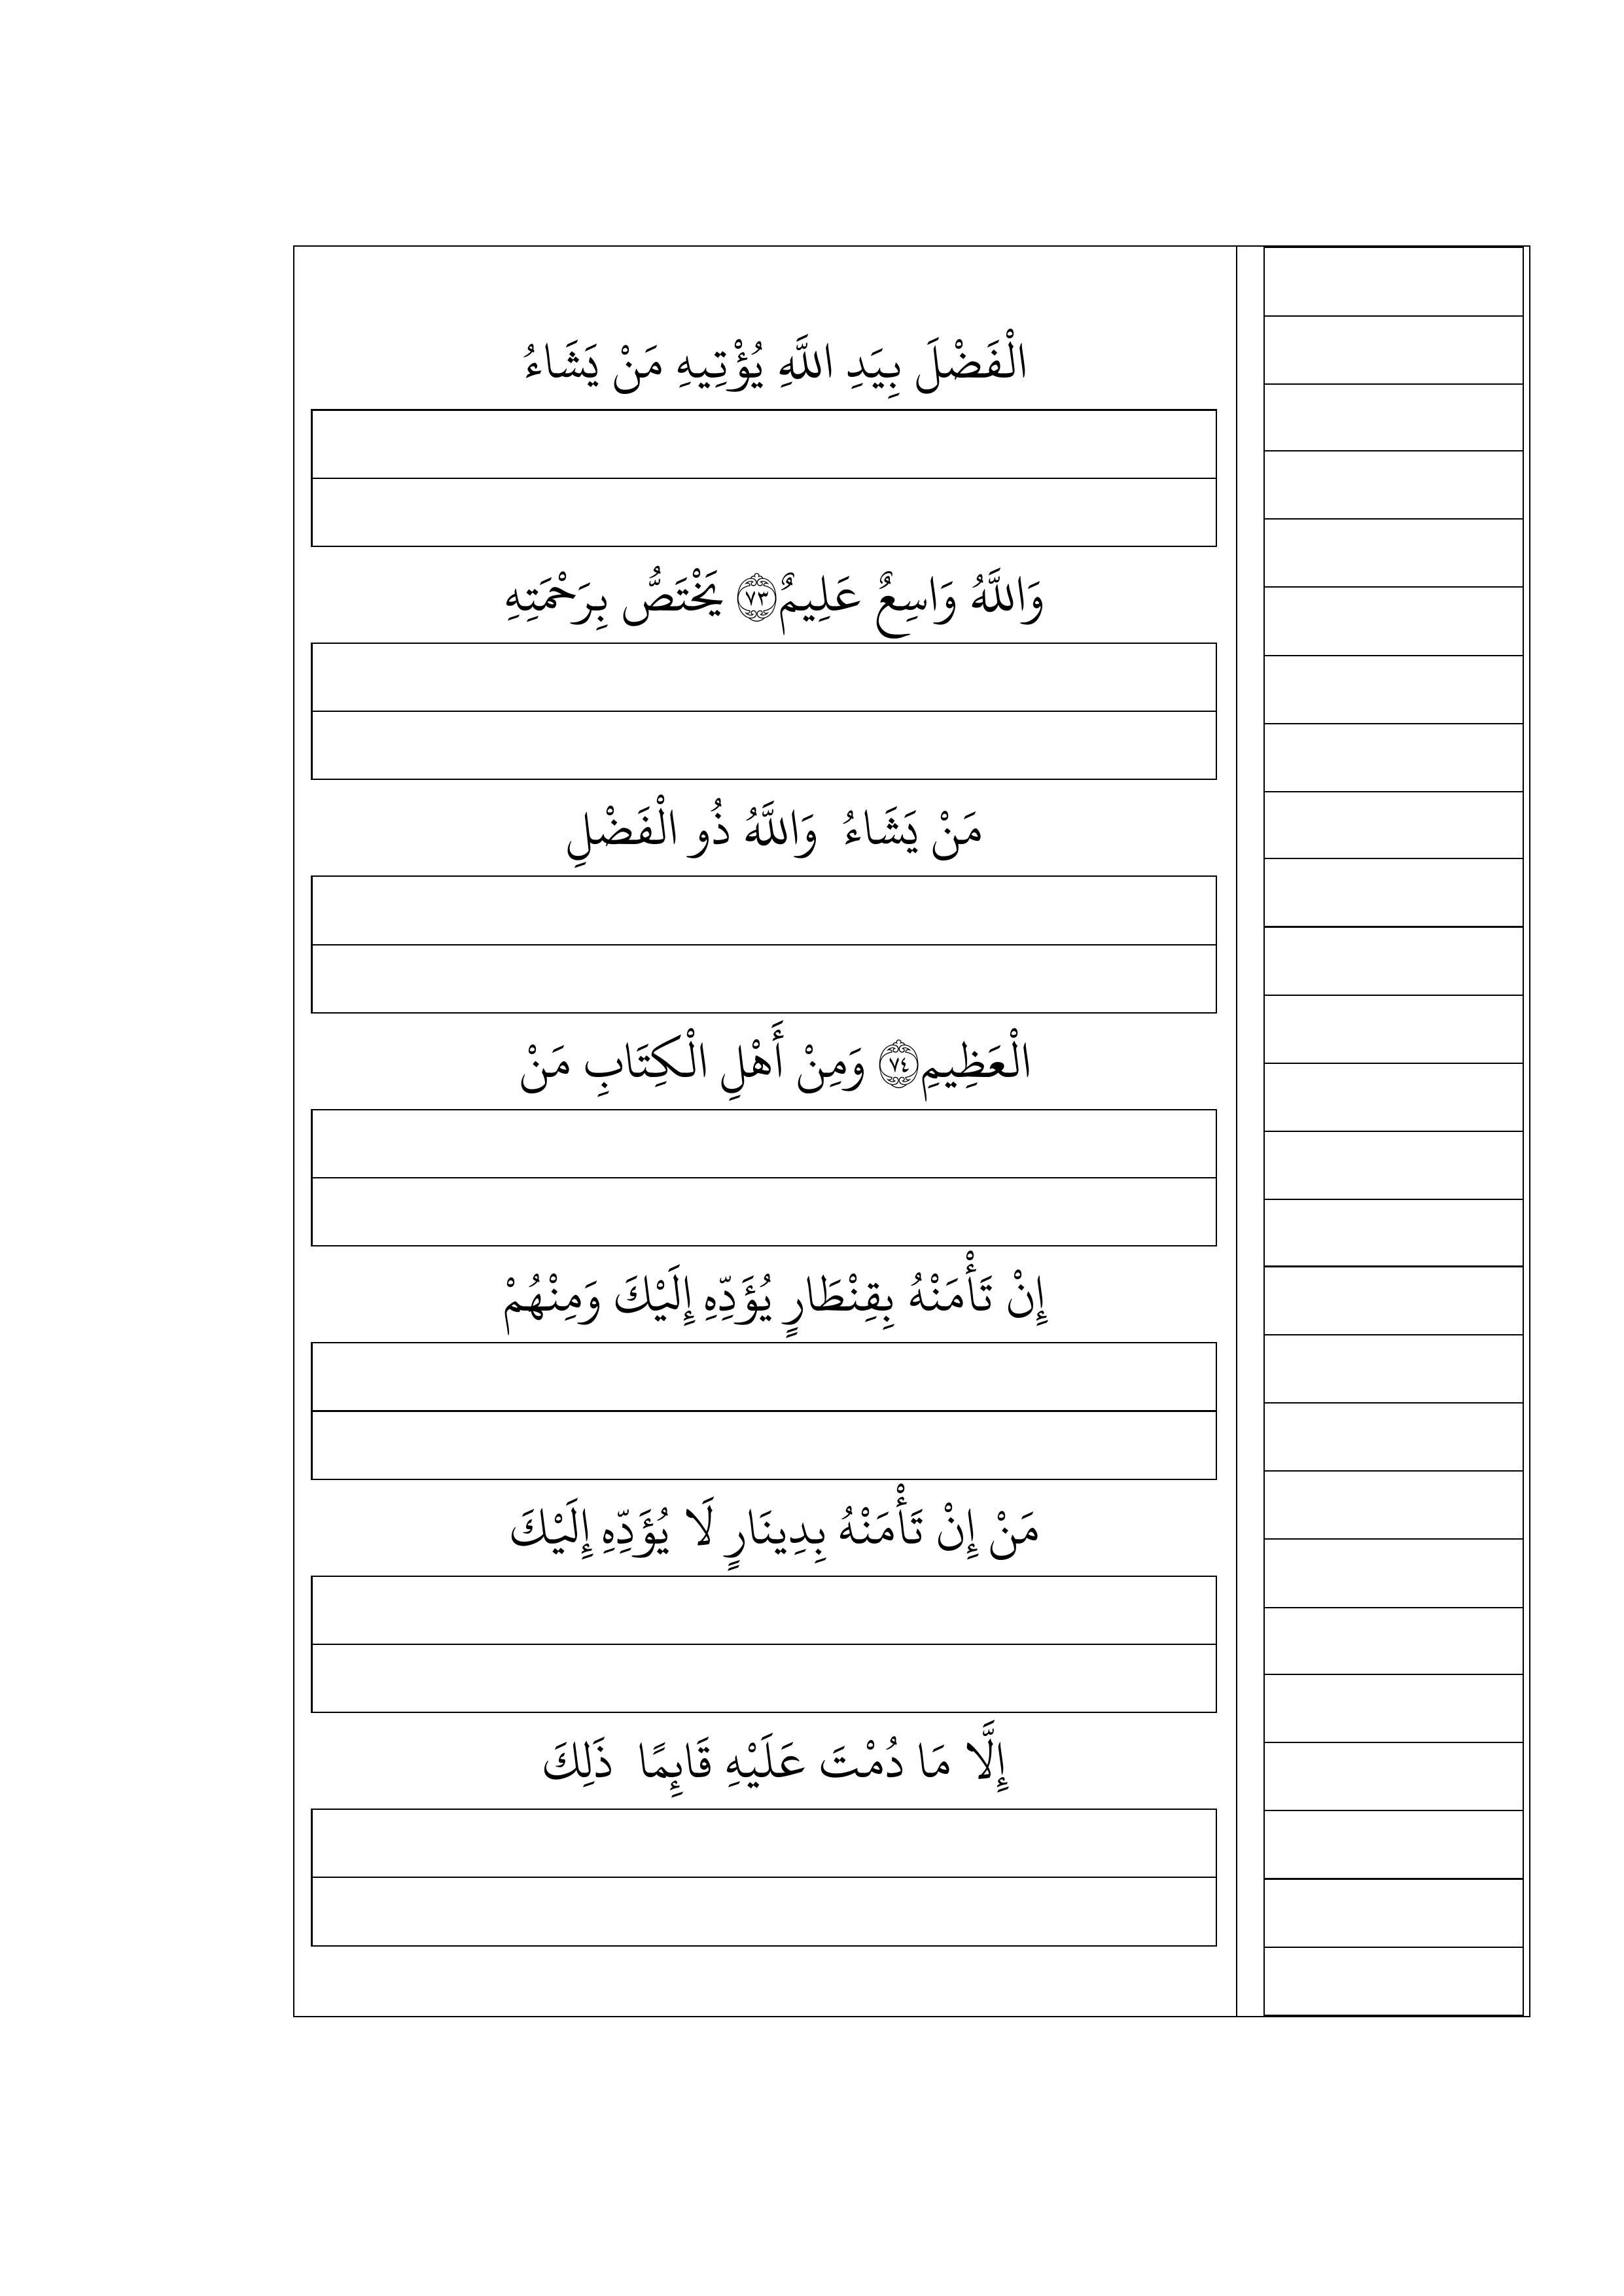 الْفَضْلَ بِيَدِ اللَّهِ يُؤْتِيهِ مَنْ يَشَاءُ
وَاللَّهُ وَاسِعٌ عَلِيمٌ ﴿٧٣﴾ يَخْتَصُّ بِرَحْمَتِهِ
مَنْ يَشَاءُ وَاللَّهُ ذُو الْفَضْلِ
الْعَظِيمِ ﴿٧٤﴾ وَمِنْ أَهْلِ الْكِتَابِ مَنْ
إِنْ تَأْمَنْهُ بِقِنْطَارٍ يُؤَدِّهِ إِلَيْكَ وَمِنْهُمْ
مَنْ إِنْ تَأْمَنْهُ بِدِينَارٍ لَا يُؤَدِّهِ إِلَيْكَ
إِلَّا مَا دُمْتَ عَلَيْهِ قَائِمًا ذَلِكَ